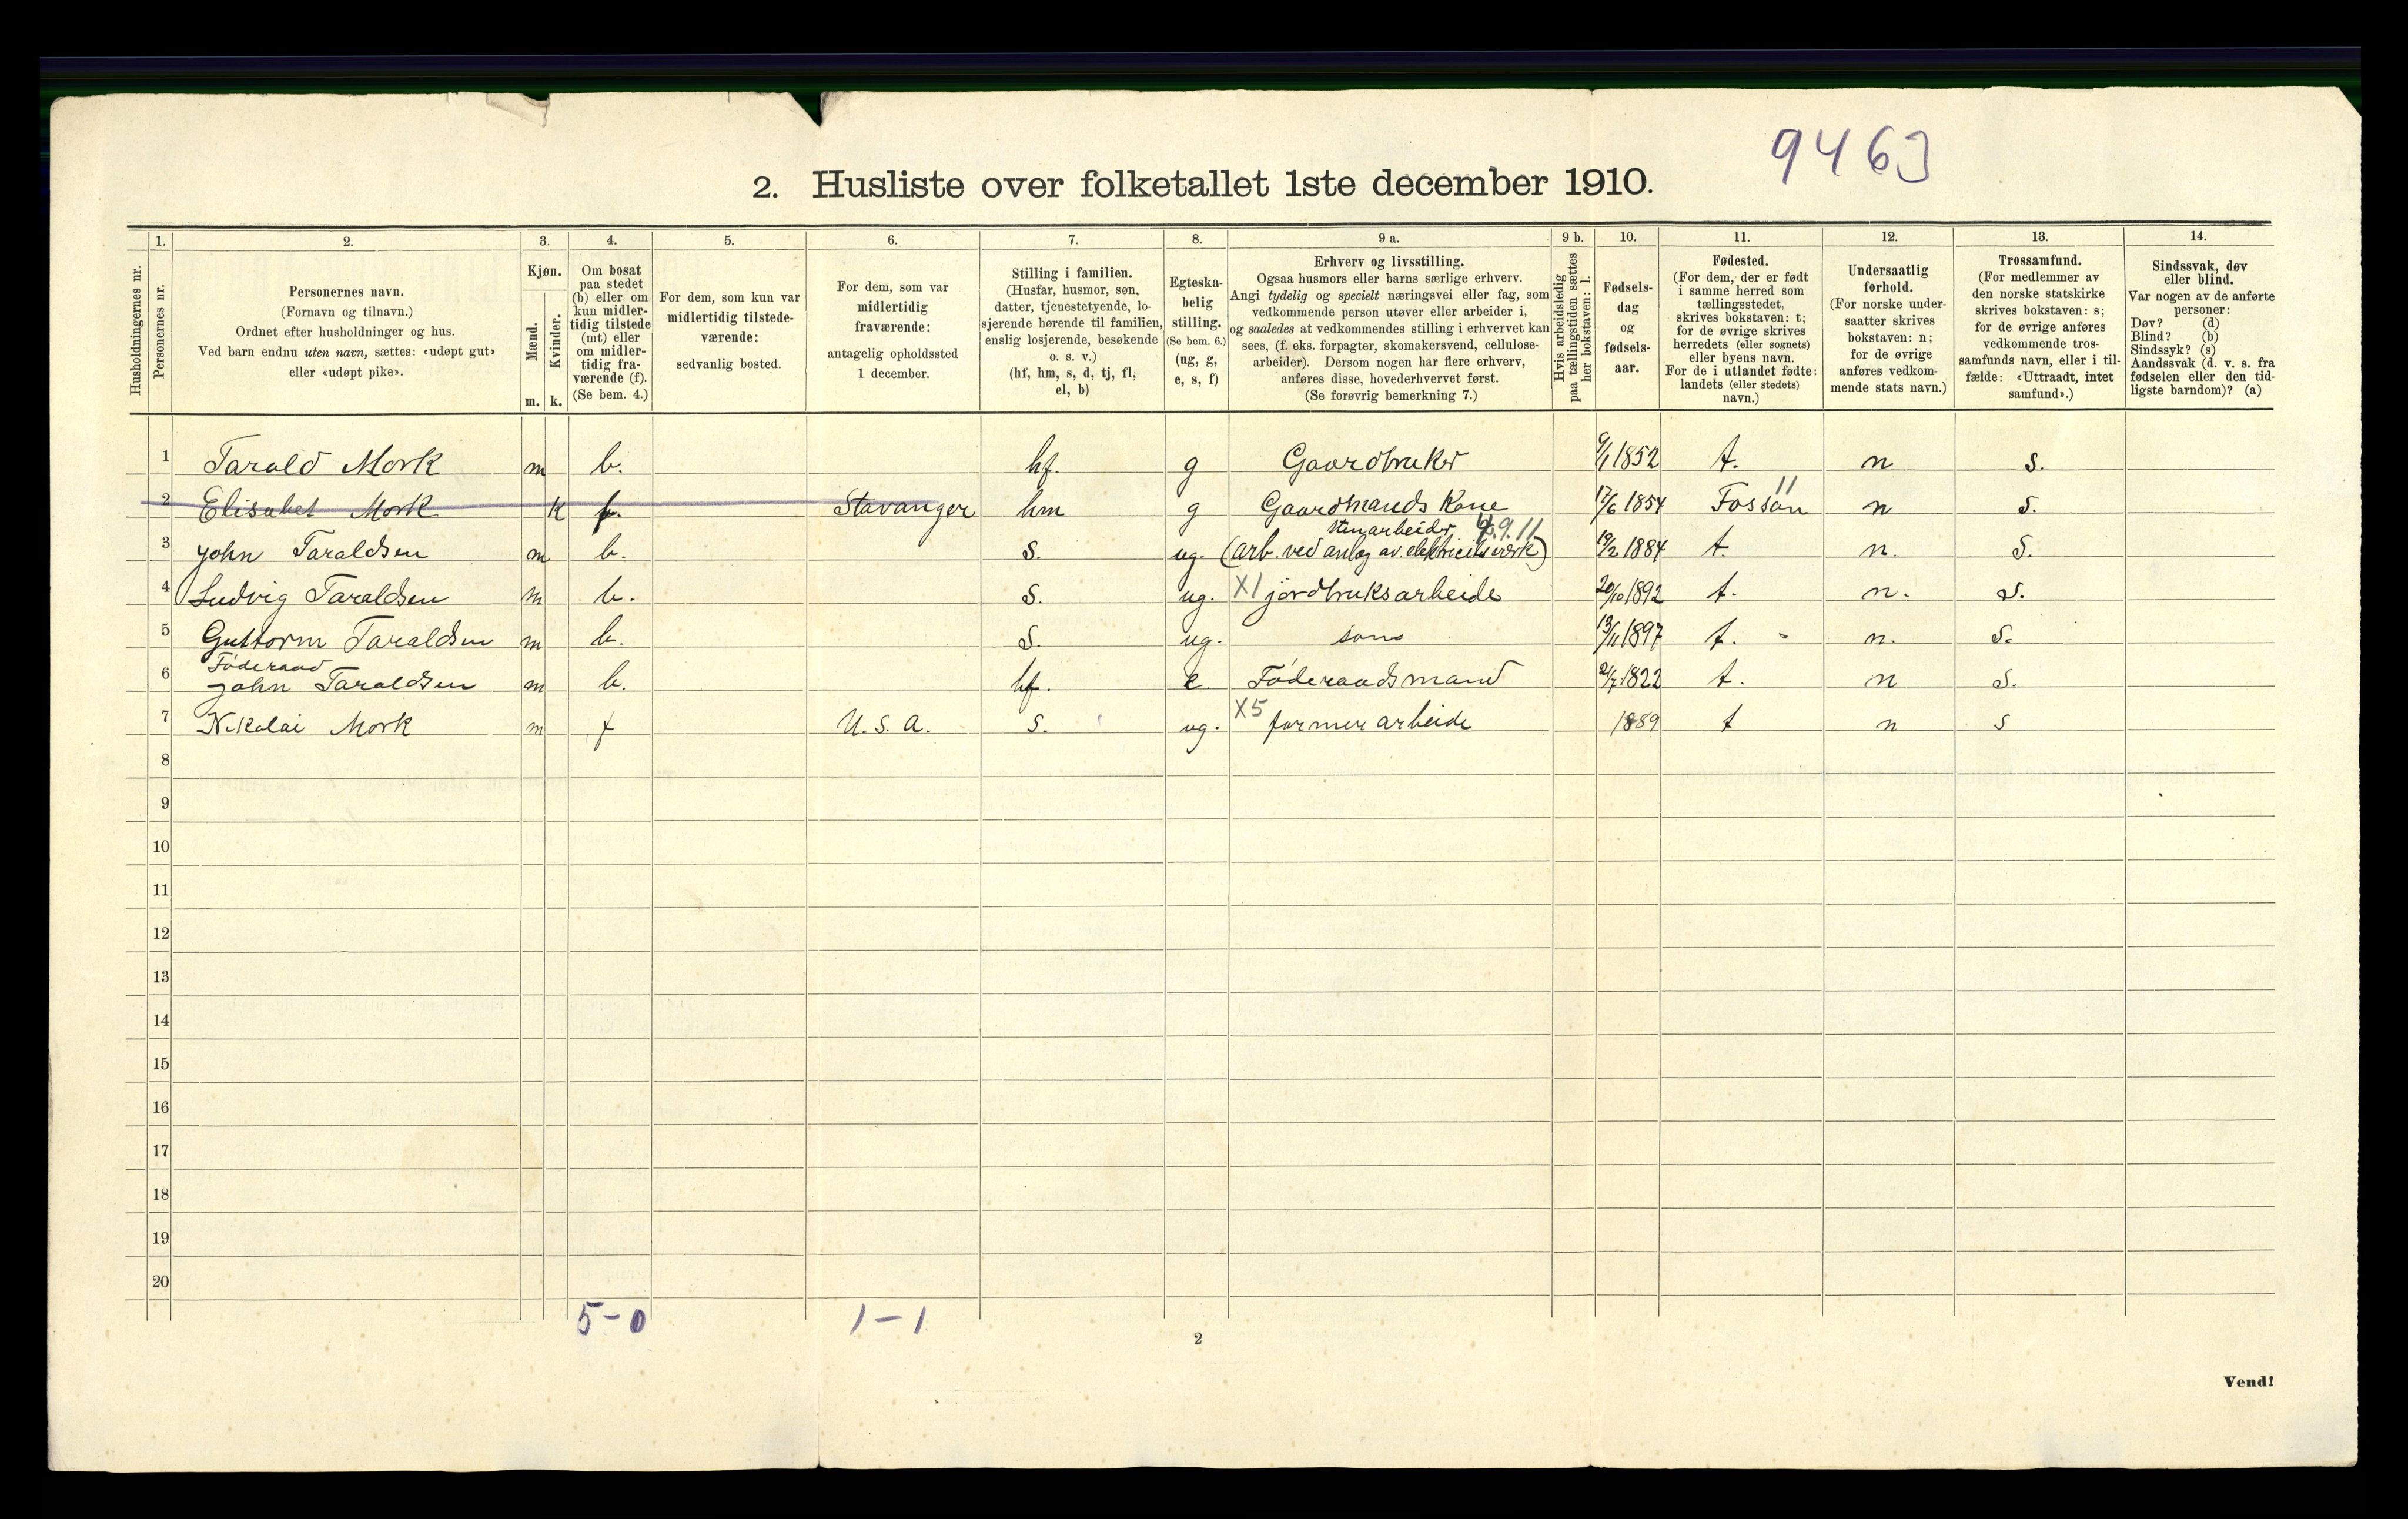 9463
2. Husliste over folketallet 1ste december 1910.
Husholdningernes nr.
1.
Personernes nr.
2.
Personernes navn.
(Fornavn og tilnavn.)
Ordnet efter husholdninger og hus.
Ved barn endnu uten navn, sættes: «udøpt gut»
eller «udøpt pike».
3.
Kjøn.
Mænd.
Kvinder.
m.
k.
4.
Om bosat
paa stedet
(b) eller om
kun midler-
tidig tilstede
(mt) eller
om midler-
tidig fra-
værende (f).
(Se bem. 4.)
5.
For dem, som kun var
midlertidig tilstede-
værende:
sedvanlig bosted.
6.
For dem, som var
midlertidig
fraværende:
antagelig opholdssted
1 december.
7.
Stilling i familien.
(Husfar, husmor, søn,
datter, tjenestetyende, lo-
sjerende hørende til familien,
enslig losjerende, besøkende
o. s. v.)
(hf, hm, s, d, tj, fl,
el, b)
8.
Egteska-
belig
stilling.
(Se bem. 6.)
(ug, g,
e, s, f)
9 a.
Erhverv og livsstilling.
Ogsaa husmors eller barns særlige erhverv.
Angi tydelig og specielt næringsvei eller fag, som
vedkommende person utøver eller arbeider i,
og saaledes at vedkommendes stilling i erhvervet kan
sees, (f. eks. forpagter, skomakersvend, cellulose-
arbeider). Dersom nogen har flere erhverv,
anføres disse, hovederhvervet først.
(Se forøvrig bemerkning 7.)
9 b.
Hvis arbeidsledig
paa tællingstiden sættes
her bokstaven: l.
10.
Fødsels-
dag
og
fødsels-
aar.
11.
Fødested.
(For dem, der er født
i samme herred som
tællingsstedet,
skrives bokstaven: t;
for de øvrige skrives
herredets (eller sognets)
eller byens navn.
For de i utlandet fødte:
landets (eller stedets)
navn.)
12.
Undersaatlig
forhold.
(For norske under-
saatter skrives
bokstaven: n;
for de øvrige
anføres vedkom-
mende stats navn.)
13.
Trossamfund.
(For medlemmer av
den norske statskirke
skrives bokstaven: s;
for de øvrige anføres
vedkommende tros-
samfunds navn, eller i til-
fælde: «Uttraadt, intet
samfund».)
14.
Sindssvak, døv
eller blind.
Var nogen av de anførte
personer:
Døv? (d)
Blind? (b)
Sindssyk? (s)
Aandssvak (d. v. s. fra
fødselen eller den tid-
ligste barndom)? (a)
1 Tarald Mork m b. hf. g Gaardbruker 1852 t. n s.
2 Elisabet Mork k f. Stavanger hm g Gaardmands Kone 17/6 1854 Fossan 11 n s.
stenarbeider 9.11.
3 John Taraldsen m b. s. ug. (arb. ved anlæg av elektricitetsværk) 19/2 1884 t. n. s.
4 Ludvig Taraldsen m b. s. ug. X1 jordbruksarbeide 20/10 1892 t. n. s.
5 Guttorm Taraldsen m b. s. ug. søns 13/11 1897 t. n. s.
Føderaad
6 John Taraldsen m b. hf. e. Føderaadsmand 2/7 1822 t. n s.
7 Nikolai Mork m f U.S.A. s. ug. X5 farmerarbeide 1889 t n s
8
9
10
11
12
13
14
15
16
17
18
19
20
5-0 1-1
2
Vend!